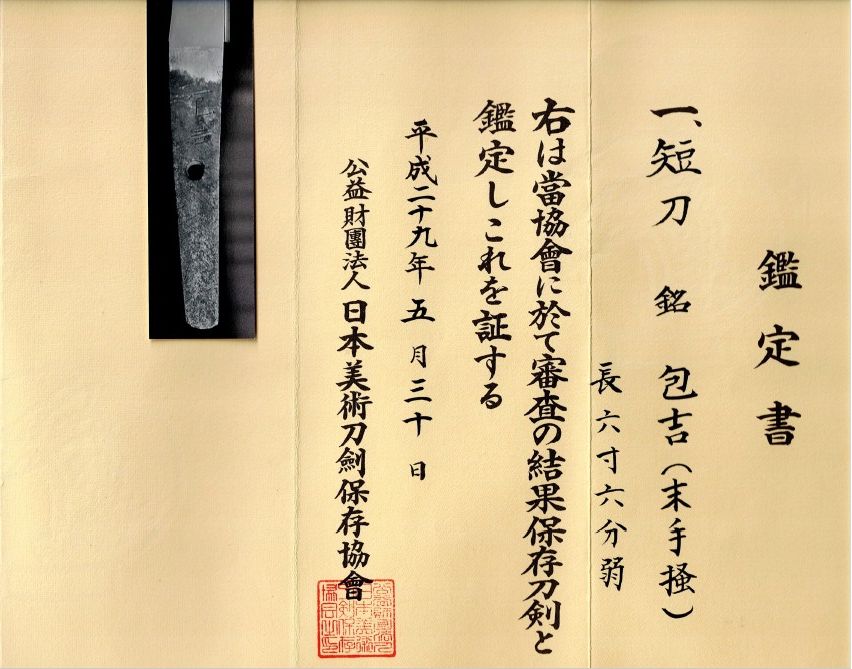 鑑定書
一、短刀 銘 包吉(末手掻)
長六寸六分弱
右は當協會に於て審査の結果保存刀剣と
鑑定しこれを証する
平成二十九年五月三十日
公益財團法人日本美術刀劍保存協會